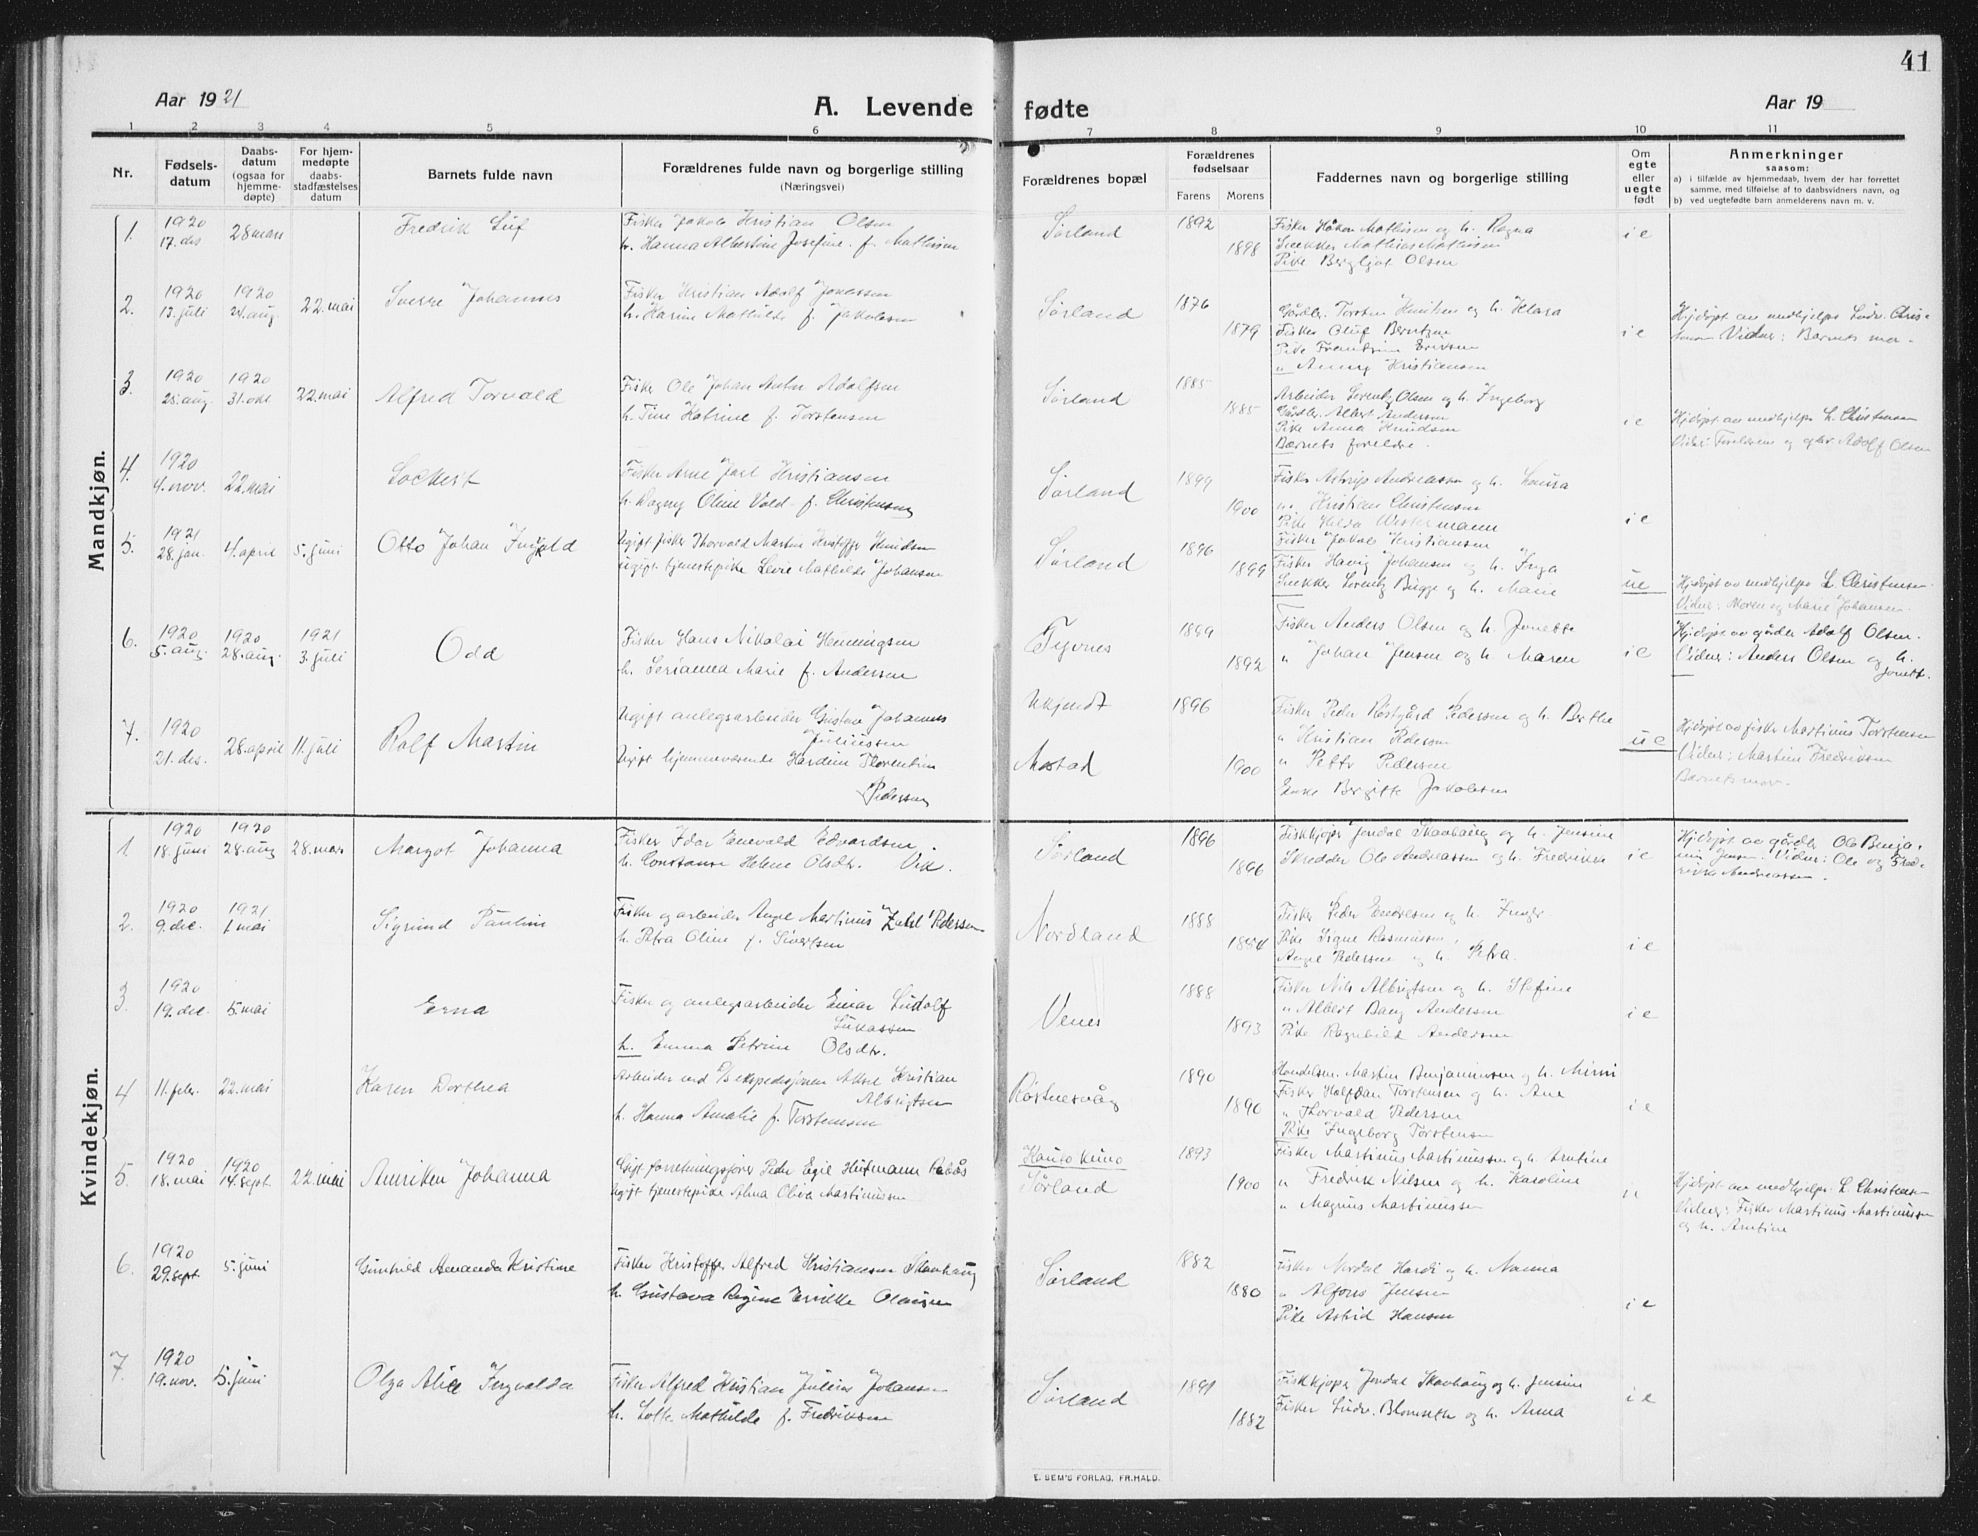 41
Aar 1921
A. Levende fødte
Aar 19
1 2 3 4 5 6 7 8 9 10 11
Nr.
Fødsels-
datum
Daabs-
datum
(ogsaa for
hjemme-
døpte)
For hjem-
medøpte
daabs-
stadfæstelses
datum
Barnets fulde navn
Forældrenes fulde navn og borgerlige stilling
(Næringsvei)
Forældrenes bopæl
Forældrenes
fødselsaar
Farens Morens
Faddernes navn og borgerlige stilling
Om
egte
eller
uegte
født
Anmerkninger
saasom:
a) i tilfælde av hjemmedaab, hvem der har forrettet
samme, med tilføielse af to daabsvidners navn, og
b) ved uegtefødte barn anmelderens navn m. v.
Mandkjøn.
1. 1920 17. des 28 mars Fredrik
Fisker Jakob Kristian Olsen
h. Hanna Albertine Josefine f. Mathisen
Sørland 1892 1898
Fisker Håkon Mathisen og h. Ragna
Snekker Mathias Mathisen
Pike Bergljot Olsen
ie
2. 1920 13. juli 1920 24. aug. 22. mai Sverre Johannes
Fisker Kristian Adolf Jonassen
h. Karine Mathilde f. Jakobsen
Sørland 1876 1879
Gårdbr. Torsten Knutsen og h. Klara
Fisker Oluf Berntzen
Pike Frantzine Eriksen
" Anny Kristiansen
ie
Hjdøpt av medhjelper Ludv. Chris-
tensen Vidner: Barnets mor.
3. 1920 25. aug. 1920 31. okt 22. mai Alfred Torvald
Fisker Ole Johan Anton Adolfsen
h. Tine Katrine f. Torstensen
Sørland 1885 1885
Arbeider Lorentz Olsen og h. Ingeborg
Gårdbr. Albert Andersen
Pike Anna Knudsen
Barnets foreldre.
ie
Hjdøpt av medhjelper L. Christensen
Vidn: Foreldrene og gbr Adolf Olsen
4. 1920 4. nov. 22. mai
Fisker Arne Jarl Kristiansen
h. Dagny Oline Vold f. Christensen
Sørland 1899 1900
Fisker Andreassen og h. Laura
" Kristian Christensen
Pike Hilda Westermann
Fisker Jakob Kristiansen
ie
5. 1921 28. jan. 4. april 5. juni Otto Johan
Ugift fisker Thorvald Martin Kristoffer Knudsen
ugift tjenestepike Levie Mathilde Johansen
Sørland 1896 1899
Fisker Johansen og h. Inga
Snekker Lorentz Bugge og h. Marie
ue
Hjdøpt av medhjelper L. Christensen
Vidner: Moren og Marie Johansen.
6. 1920 5. aug. 1920 28. aug. 1921 3. juli Odd
Fisker Hans Nikolai Henningsen
h. Marie f. Andersen
Tyvnes 1892
Fisker Anders Olsen og h. Jonette
" Johan Jensen og h. Maren
ie
Hjdøpt av gårdbr Adolf Olsen.
Vidner: Anders Olsen og h.
Jonette.
7. 1920 21. des. 28. april 11. juli Rolf Martin
Ugift anlegsarbeider Gustav Johannes
Juliussen
Ugift hjemmeværende Florentine
Pedersen
Ukjendt
Mostad
1896 1900
Fisker Peder Pedersen og h. Berthe
" Kristian Pedersen
" Petter Pedersen
Enke Bergitte Jakobsen
ue
Hjdøpt av fisker Martinus Torstensen
Vidner: Martine Fredriksen
Barnets mor.
Kvindekjøn.
1. 1920 18. juni 1920 28. aug 28. mars Margot Johanna
Fisker Idar Enevald Edvardsen
h. Constanse Helene Olsdtr. Vik.
Sørland 1896 1896
Fiskkjøper Jendal Skavhaug og h. Jensine
Skredder Ole Andreassen og h. Fredrikke
ie
Hjdøpt av gårdbr Ole Benja-
min Jensen. Vidner: Ole og Fred-
rikke Andreassen.
2. 1920 9. dec. 1921 1 mai Sigrund Pauline
Fisker og arbeider Angel Martinus Zahl Pedersen
h. Petra Oline f. Sivertsen
Nordland 1888
Fisker Peder Endresen og h. Inger
Pike Signe Rasmussen.
Angel Pedersen og h. Petra.
ie
3. 1920 19. dec. 5. mai Erna
Fisker og anlegsarbeider Einar Ludolf
Lukassen
h. Emma Petrine Olsdtr.
Venes 1888 1893
Fisker Nils Albrigtsen og h. Stefine
" Albert Bang Andersen
Pike Ragnhild Andersen
ie
4 11. febr. 22. mai Karen Dorthea
Arbeider ved D/S ekspedisjonen Aksel Kristian
Albrigtsen
h. Hanna Amalie f. Torstensen
Røstnesvåg 1890 1896
Handelsm. Martin Benjaminsen og h. Mimi
Fisker Halfdan Torstensen og h. Ane
" Thorvald Pedersen
Pike Ingeborg Torstensen
ie
5. 1920 18. mai 1920 14. sept. 22. mai Anriken Johanna
Gift forretningsfører Peder Egil Hufmann
Ugift tjenestepike Alma Oliva Martinussen
Kautokeino
Sørland
1893 1900
Fisker Martinus Martinussen og h. Arntine
" Fredrik Nilsen og h. Karoline
" Magnus Martinussen
Hjdøpt av medhjelper L. Christensen
Vidner: Fisker Martinus Martinussen
og h. Arntine
6. 1920 29. sept. 5. juni Gunhild Amanda Kristine
Fisker Kristoffer Alfred Kristiansen Skavhaug
h. Gustava Regine Olausen
Sørland 1882 1880
Fisker Nordal Hardi og h. Nanna
" Alfons Jensen
Pike Astrid Hansen
ie
7. 1920 19. nov. 5. juni Olga Alice Ingvalda
Fisker Alfred Kristian Julius Johansen
h. Lotte Mathilde f. Fredriksen
Sørland 1882
Fiskkjøper Jendal Skavhaug og h. Jensine
Fisker Ludv. Blomseth og h. Anna
ie
E. SEM'S FORLAG, FR.HALD.